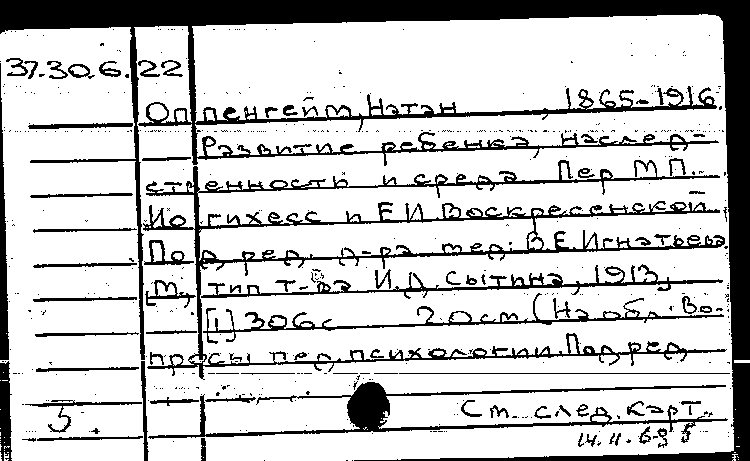 37.30.6.22
Оппенгейм, Натан , 1865-1916.
Развитие ребенка, наслед-
ственность и среда Пер М.П.
Иогихесс и Е И Воскресенской
Под ред. д-ра мед. В.Е.Игнатьева
М., тип т-ва И.Д.Сытина, 1913,
[1] 306с 20см. (На обл. Во-
просы пед. психологии. Под ред
5.
См. след. карт.